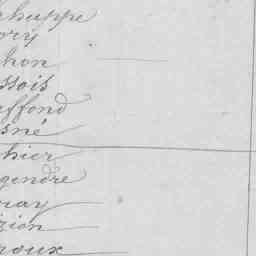 huppe
ry
hon
ssois
uffond
sné
hier
gendre
nay
zion
roux